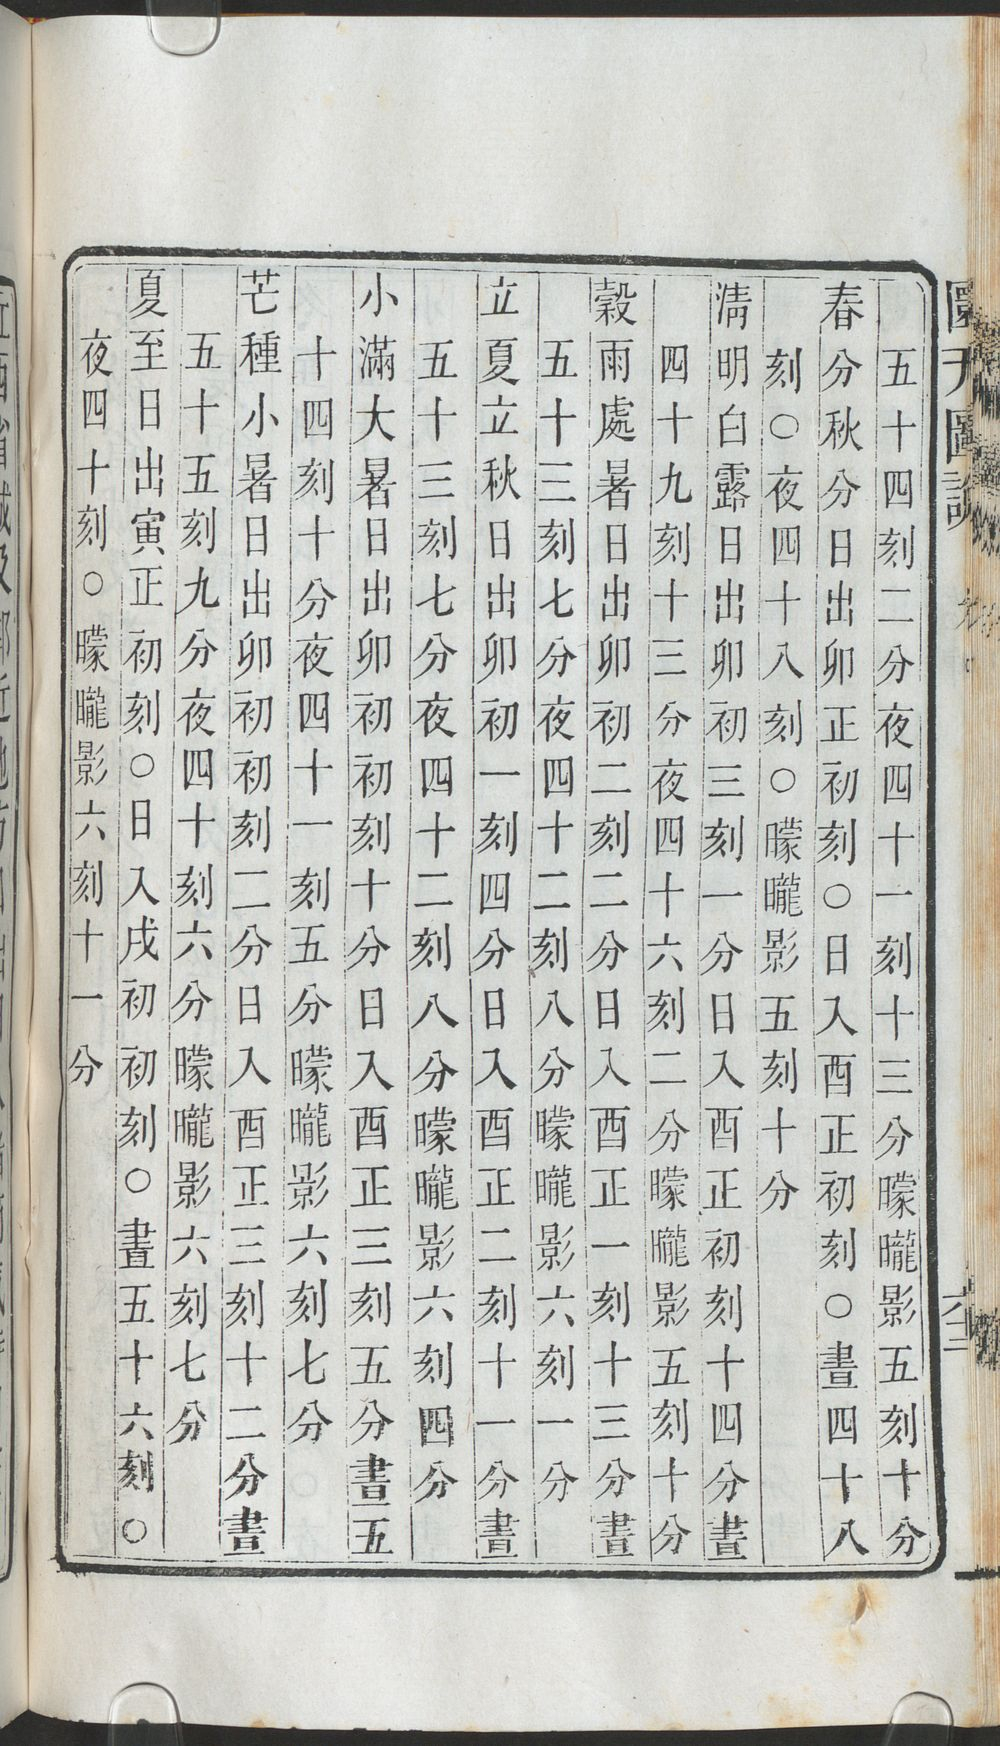 五十四刻二分夜四十一刻十三分曚曨影五刻十分
春分秋分日出卯正初刻○日入酉正初刻○晝四十八
刻○夜四十八刻○曚曨影五刻十分
清明白露日出卯初三刻一分日入酉正初刻十四分晝
四十九刻十三分夜四十六刻二分曚曨影五刻十分
穀雨處暑日出卯初二刻二分日入酉正一刻十三分晝
五十三刻七分夜四十二刻八分曚曨影六刻一分
立夏立秋日出卯初一刻四分日入酉正二刻十一分晝
五十三刻七分夜四十二刻八分曚曨影六刻四分
小滿大暑日出卯初初刻十分日入酉正三刻五分晝五
十四刻十分夜四十一刻五分曚曨影六刻七分
芒種小暑日出卯初初刻二分日入酉正三刻十二分晝
五十五刻九分夜四十刻六分曚曨影六刻七分
夏至日出寅正初刻○日入戌初初刻○晝五十六刻○
夜四十刻○曚曨影六刻十一分